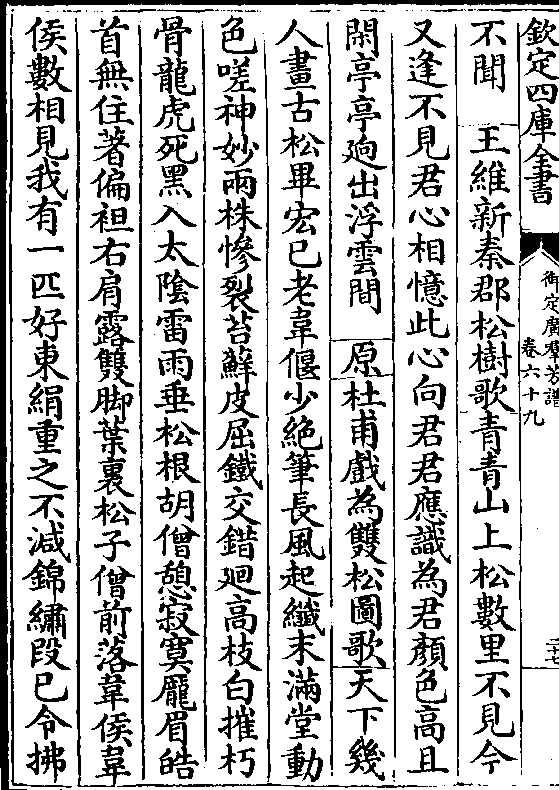 欽定四庫全書
御定廣羣芳譜
卷六十九
二十七
不聞　王維新秦郡松樹歌青青山上松數里不見今
又逢不見君心相憶此心向君君應識為君顏色高且
閑亭亭逈出浮雲間　原杜甫戲為雙松圖歌天下幾
人畫古松畢宏已老韋偃少絶筆長風起纖末滿堂動
色嗟神妙兩株慘裂苔蘚皮屈鐵交錯廻高枝白摧朽
骨龍虎死黑入太陰雷雨垂松根胡僧憩寂寞厖眉皓
首無住著偏袒右肩露雙脚葉裏松子僧前落韋侯韋
侯數相見我有一匹好東絹重之不減錦繡段已令拂